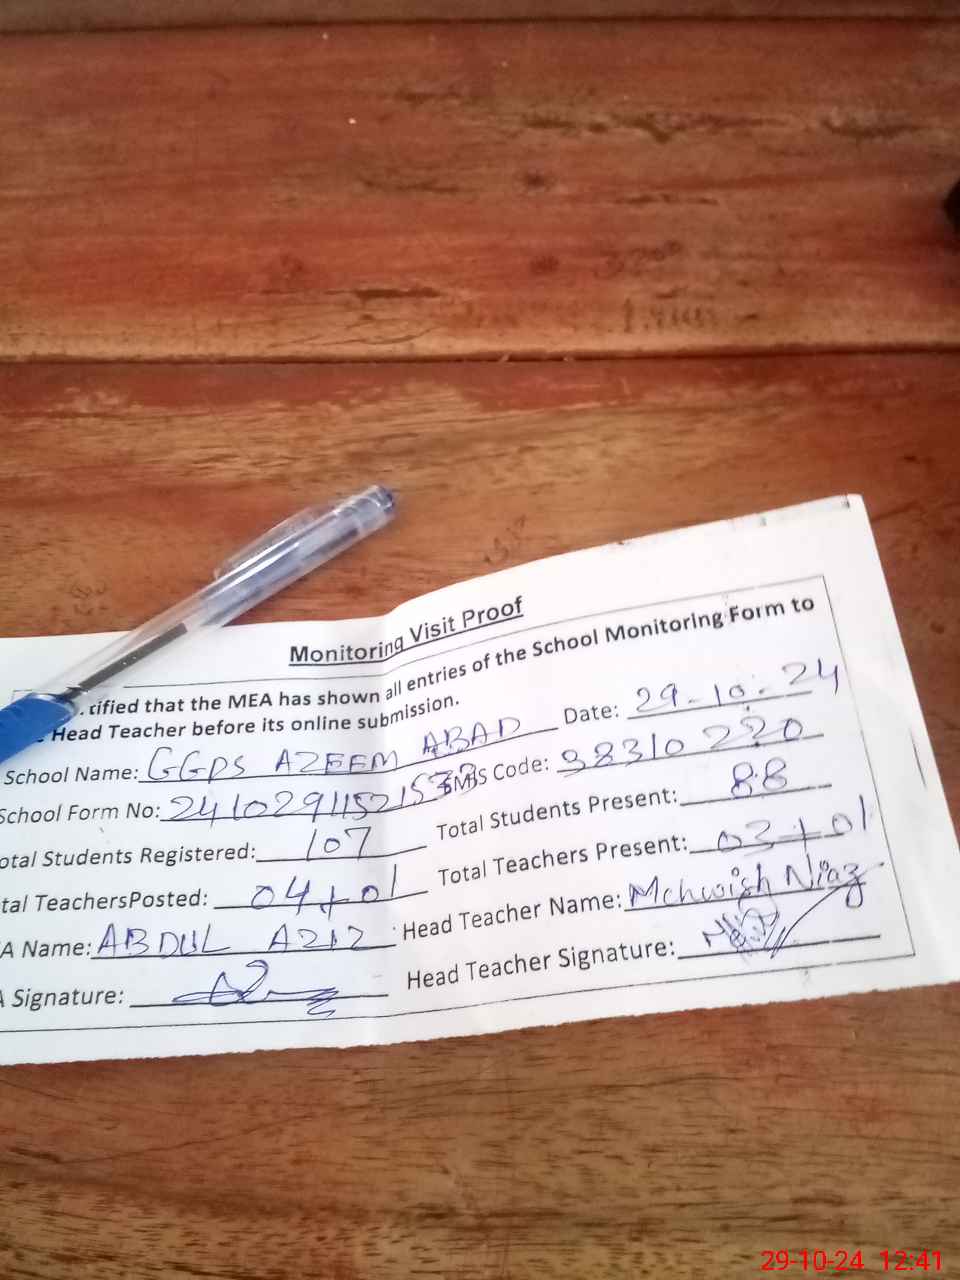 Monitoring Visit Proof
tified that the MEA has shown all entries of the School Monitoring Form to
Head Teacher before its online submission.
School Name: GGPS AZEEM ABAD Date: 29-10-24
School Form No: MIS Code: 38310220
otal Students Registered: 107 Total Students Present: 88
tal TeachersPosted: 04+01 Total Teachers Present: 03+01
A Name: ABDUL AZIZ Head Teacher Name: Mehwish Niaz
A Signature: Head Teacher Signature:
29-10-24 12:41